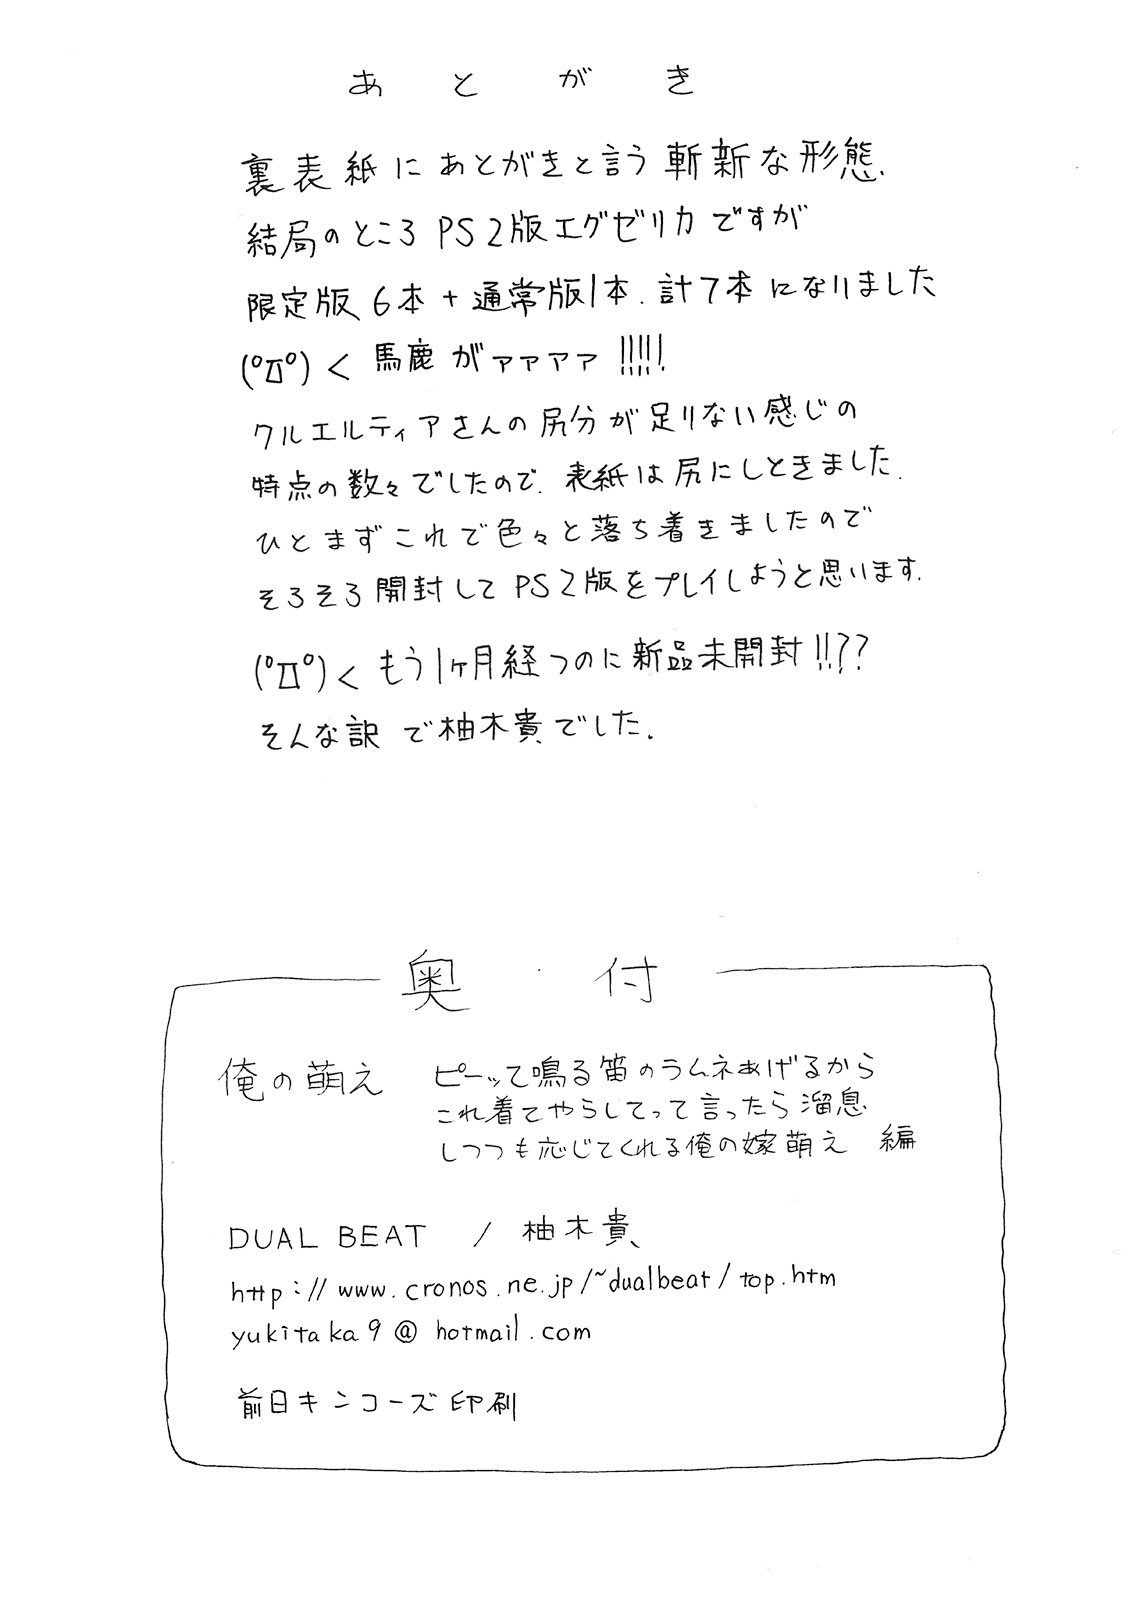 あとがき
裏表紙にあとがきと言う斬新な形態.
結局のところPS2版エグゼリカですが
限定版6本+通常版1本.計7本になりました
(ﾟДﾟ)<馬鹿がァァァァ!!!!!
クルエルティアさんの尻分が足りない感じの
特点の数々でしたので.表紙は尻にしときました.
ひとまずこれで色々と落ち着きましたので
そろそろ開封してPS2版をプレイしようと思います.
(ﾟДﾟ)<もう1ヶ月経つのに新品未開封!!??
そんな訳で柚木貴でした.
奥付
俺の萌え ピーッて鳴る笛のラムネあげるから
これ着てやらしてって言ったら溜息
しつつも応じてくれる俺の嫁萌え 編
DUAL BEAT / 柚木貴
http://www.cronos.ne.jp/~dualbeat/top.htm
yukitaka9@hotmail.com
前日キンコーズ印刷